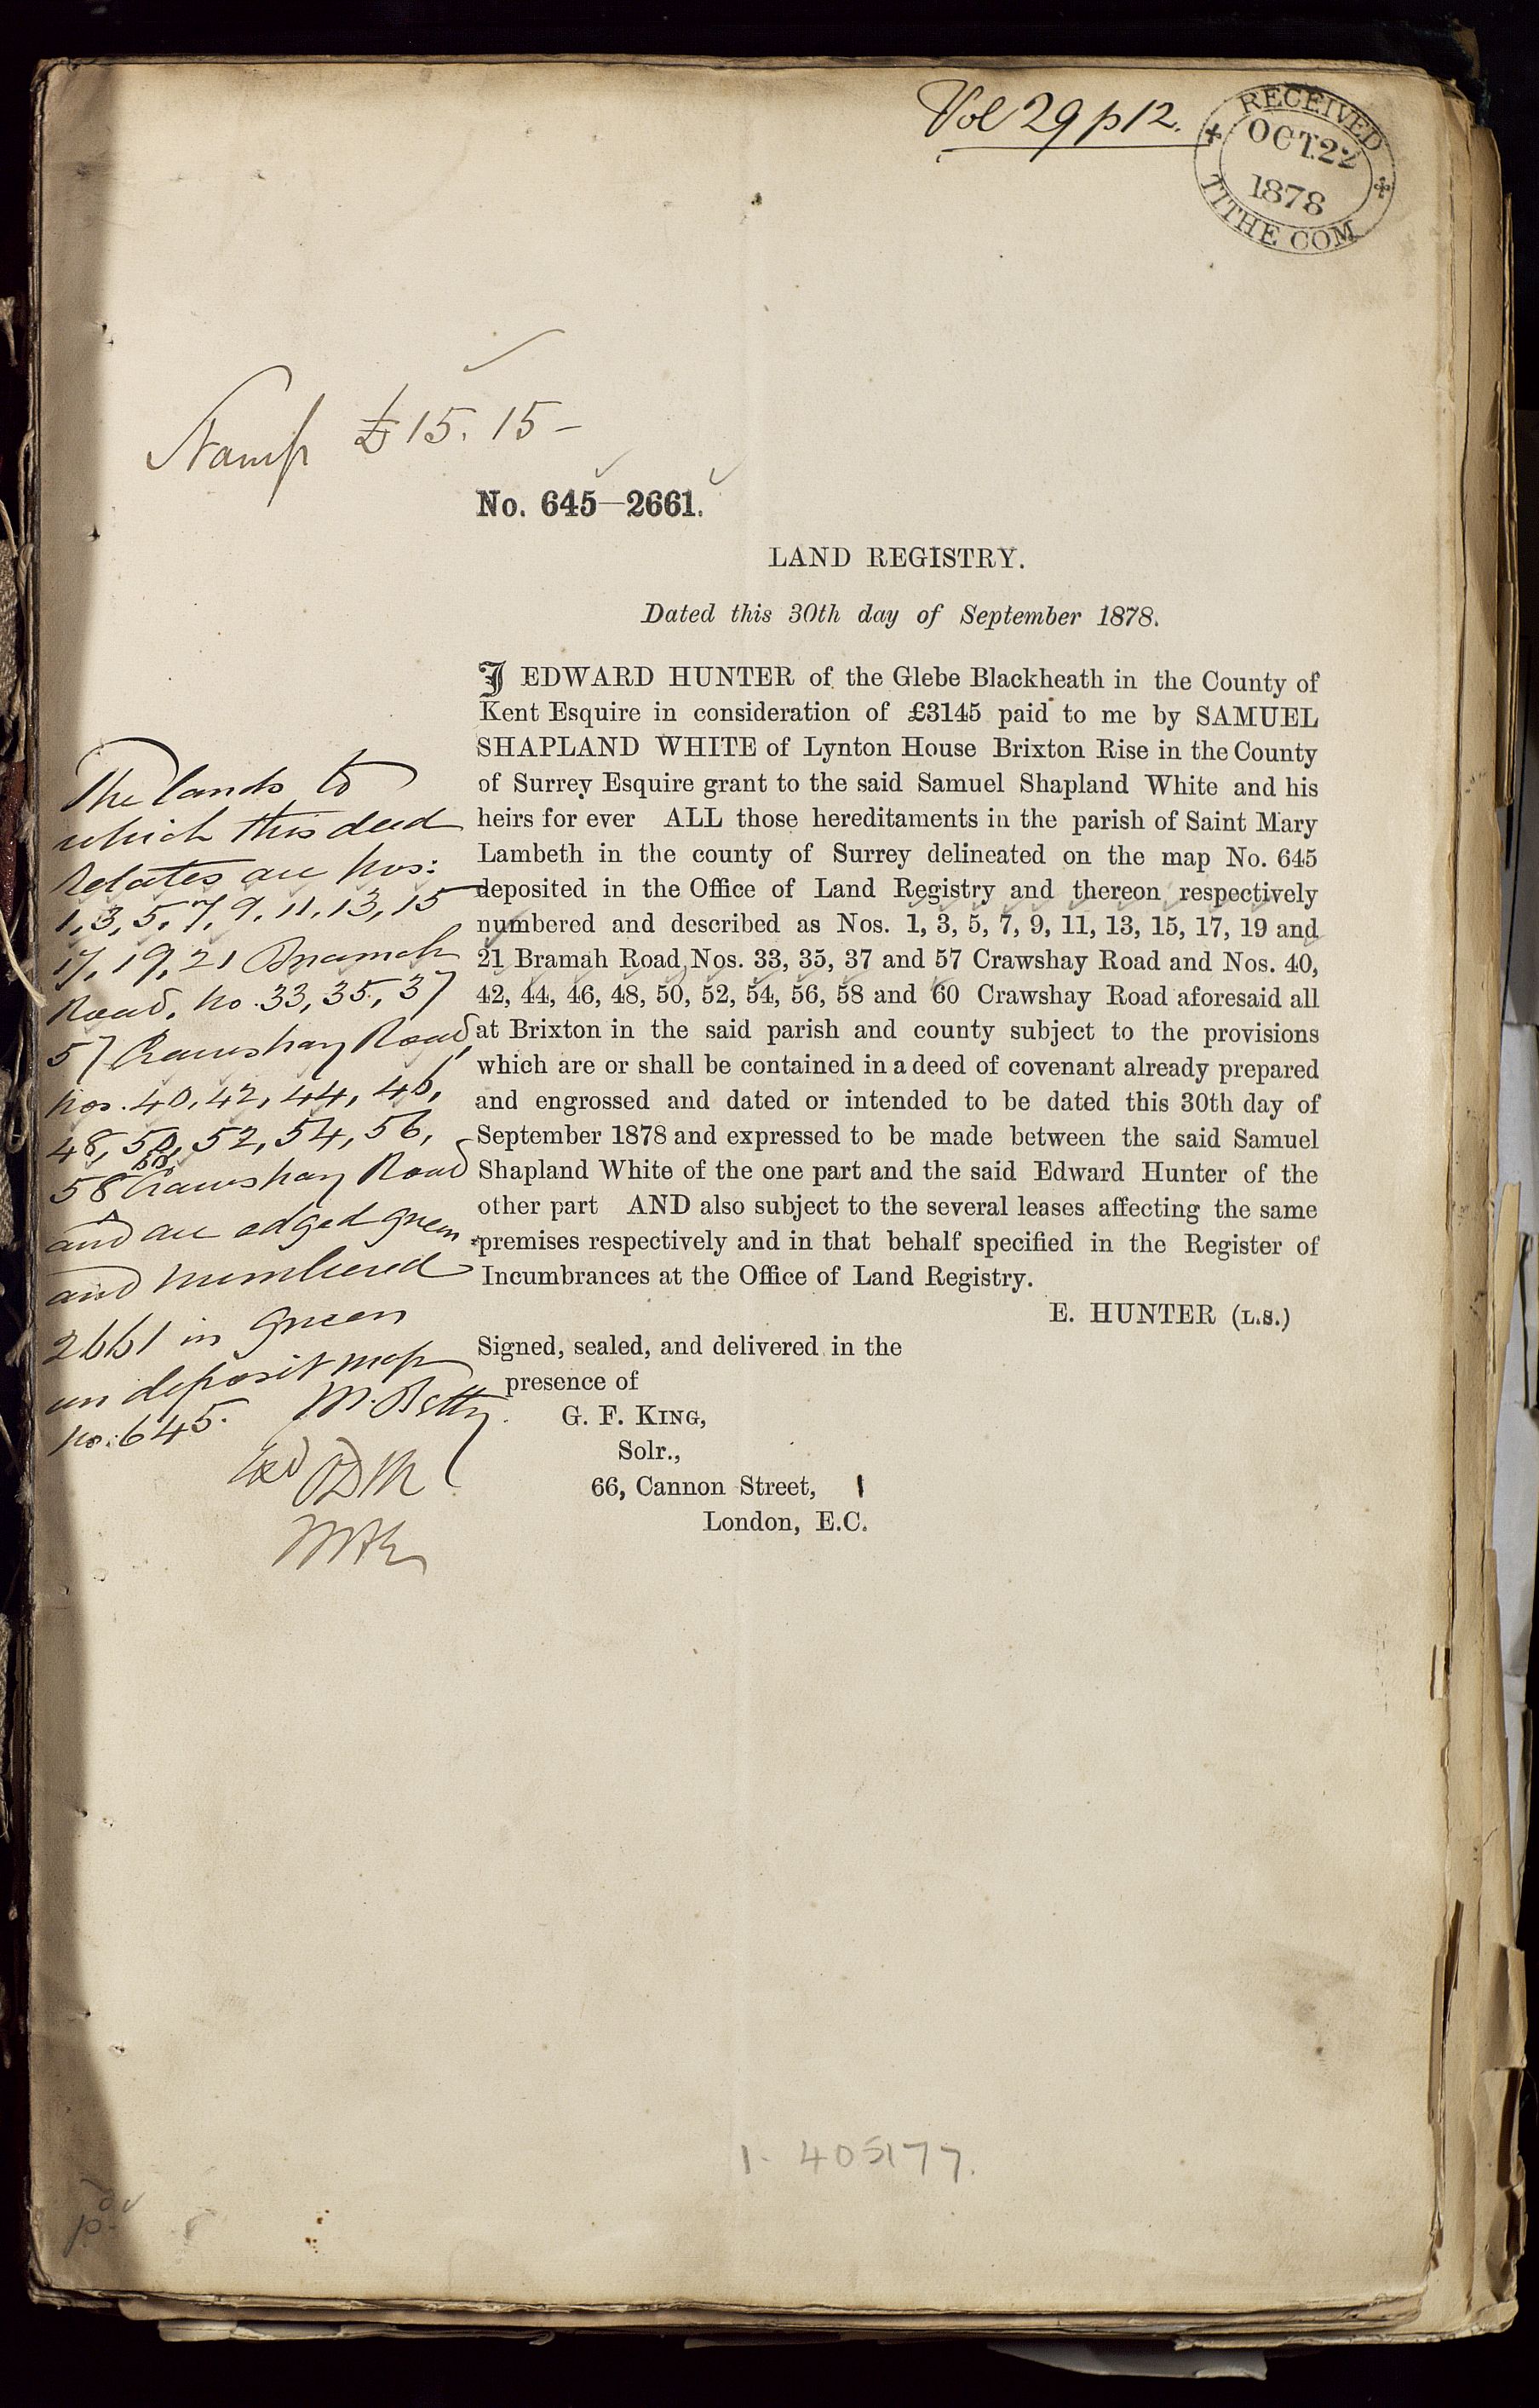 Vol 29 p 12.
RECEIVED
OCT.22
1878
TITHE COM
Stamp £15. 15 -
No. 645—2661.
LAND REGISTRY.
Dated this 30th day of September 1878.
I EDWARD HUNTER of the Glebe Blackheath in the County of
Kent Esquire in consideration of £3145 paid to me by SAMUEL
SHAPLAND WHITE of Lynton House Brixton Rise in the County
of Surrey Esquire grant to the said Samuel Shapland White and his
heirs for ever ALL those hereditaments in the parish of Saint Mary
Lambeth in the county of Surrey delineated on the map No. 645
deposited in the Office of Land Registry and thereon respectively
numbered and described as Nos. 1, 3, 5, 7, 9, 11, 13, 15, 17, 19 and
21 Bramah Road, Nos. 33, 35, 37 and 57 Crawshay Road and Nos. 40,
42, 44, 46, 48, 50, 52, 54, 56, 58 and 60 Crawshay Road aforesaid all
at Brixton in the said parish and county subject to the provisions
which are or shall be contained in a deed of covenant already prepared
and engrossed and dated or intended to be dated this 30th day of
September 1878 and expressed to be made between the said Samuel
Shapland White of the one part and the said Edward Hunter of the
other part AND also subject to the several leases affecting the same
premises respectively and in that behalf specified in the Register of
Incumbrances at the Office of Land Registry.
E. HUNTER (L.S.)
Signed, sealed, and delivered in the
presence of
G. F. KING,
Solr.,
66, Cannon Street,
London, E.C.
The lands to
which this deed
relates are Nos:
1, 3, 5, 7, 9, 11, 13, 15
17, 19, 21 Bramah
Road, No. 33, 35, 37
57 Crawshay Road,
Nos. 40, 42, 44, 46,
48, 50, 52, 54, 56,
60
58 Crawshay Road
and are edged green
and numbered
2661 in green
on deposit map
No: 645.
M. Betty.
1. 405177.